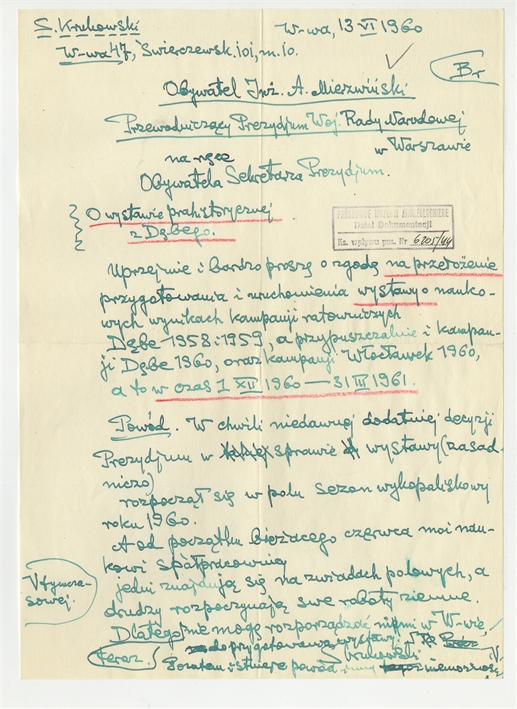 S. Krukowski
W-wa, 13 VI 1960
W-wa 47, Świerczewsk. 101, m. 10.
Br
Obywatel Inż. A. Mierzwiński
Przewodniczący Prezydjum Woj. Rady Narodowej
w Warszawie
na ręce
Obywatela Sekretarza Prezydjum.
O wystawie prahistorycznej
z Dębego.
Dział Dokumentacji
Ks. wpływu poz. Nr 6205/44
Uprzejmie i bardzo proszę o zgodę na przełożenie
przygotowania i uruchomienia wystawy o nauko-
wych wynikach kampanji ratowniczych
Dębe 1958 i 1959, a przypuszczalnie i kampan-
ji Dębe 1960, oraz kampanji Włocławek 1960,
a to w czas 1 XII 1960 — 31 III 1961.
Powód. W chwili niedawnej dodatniej decyzji
Prezydjum w sprawie wystawy (zasad-
niczo)
rozpoczął się w polu sezon wykopaliskowy
roku 1960.
A od początku bieżącego czerwca moi nau-
kowi współpracownicy
jedni znajdują się na zwiadach polowych, a
drudzy rozpoczynają swe roboty ziemne.
V tymcza-
sowej.
Dlatego nie mogę rozporządzać nimi w W-wie,
teraz
do przygotowania wystawy.
S Krukowski
Pozatem istnieje powód inny